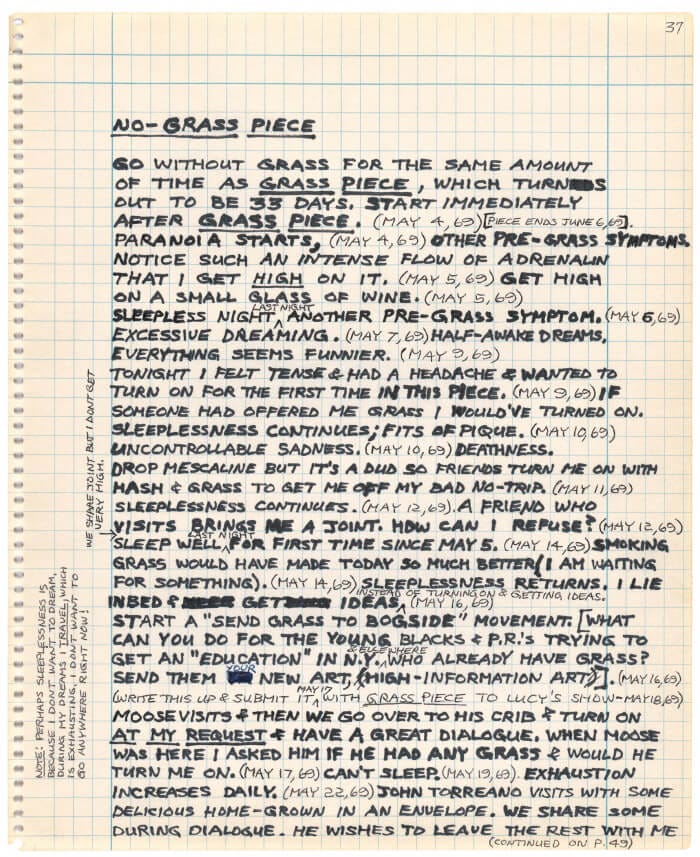 37
NO-GRASS PIECE
GO WITHOUT GRASS FOR THE SAME AMOUNT
OF TIME AS GRASS PIECE, WHICH TURNS
OUT TO BE 33 DAYS. START IMMEDIATELY
AFTER GRASS PIECE. (MAY 4,69) [PIECE ENDS JUNE 6,69].
PARANOIA STARTS, (MAY 4,69) OTHER PRE-GRASS SYMPTOMS.
NOTICE SUCH AN INTENSE FLOW OF ADRENALIN
THAT I GET HIGH ON IT. (MAY 5,69) GET HIGH
ON A SMALL GLASS OF WINE. (MAY 5,69)
LAST NIGHT
SLEEPLESS NIGHT, ANOTHER PRE-GRASS SYMPTOM. (MAY 6,69)
EXCESSIVE DREAMING. (MAY 7,69) HALF-AWAKE DREAMS,
EVERYTHING SEEMS FUNNIER. (MAY 9,69)
TONIGHT I FELT TENSE & HAD A HEADACHE & WANTED TO
TURN ON FOR THE FIRST TIME IN THIS PIECE. (MAY 9,69) IF
SOMEONE HAD OFFERED ME GRASS I WOULD'VE TURNED ON.
SLEEPLESSNESS CONTINUES; FITS OF PIQUE. (MAY 10,69)
UNCONTROLLABLE SADNESS. (MAY 10,69) DEATHNESS.
DROP MESCALINE BUT IT'S A DUD SO FRIENDS TURN ME ON WITH
HASH & GRASS TO GET ME OFF MY BAD NO-TRIP. (MAY 11,69)
SLEEPLESSNESS CONTINUES. (MAY 12,69). A FRIEND WHO
VISITS BRINGS ME A JOINT. HOW CAN I REFUSE? (MAY 12,69)
WE SHARE JOINT BUT I DON'T GET
VERY HIGH.
LAST NIGHT
SLEEP WELL FOR FIRST TIME SINCE MAY 5. (MAY 14,69) SMOKING
GRASS WOULD HAVE MADE TODAY SO MUCH BETTER (I AM WAITING
FOR SOMETHING). (MAY 14,69) SLEEPLESSNESS RETURNS. I LIE
INSTEAD OF TURNING ON & GETTING IDEAS.
INBED & GET IDEAS (MAY 16,69)
START A "SEND GRASS TO BOGSIDE" MOVEMENT. [WHAT
CAN YOU DO FOR THE YOUNG BLACKS & P.R.'S TRYING TO
& ELSEWHERE
GET AN "EDUCATION" IN N.Y. WHO ALREADY HAVE GRASS?
YOUR
SEND THEM NEW ART, (HIGH-INFORMATION ART)]. (MAY 16,69)
MAY 17
(WRITE THIS UP & SUBMIT IT WITH GRASS PIECE TO LUCY'S SHOW-MAY 18,69)
MOOSE VISITS & THEN WE GO OVER TO HIS CRIB & TURN ON
AT MY REQUEST & HAVE A GREAT DIALOGUE. WHEN MOOSE
WAS HERE I ASKED HIM IF HE HAD ANY GRASS & WOULD HE
TURN ME ON. (MAY 17,69) CAN'T SLEEP. (MAY 19,69). EXHAUSTION
INCREASES DAILY. (MAY 22,69) JOHN TORREANO VISITS WITH SOME
DELICIOUS HOME-GROWN IN AN ENVELOPE. WE SHARE SOME
DURING DIALOGUE. HE WISHES TO LEAVE THE REST WITH ME
(CONTINUED ON P. 49)
NOTE: PERHAPS SLEEPLESSNESS IS
BECAUSE I DON'T WANT TO DREAM.
DURING MY DREAMS I TRAVEL, WHICH
IS EXHAUSTING. I DON'T WANT TO
GO ANYWHERE RIGHT NOW!